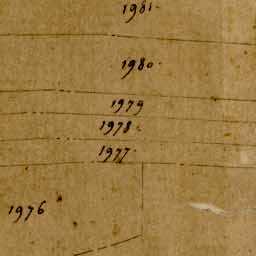 1981.
1980.
1979
1978.
1977.
1976